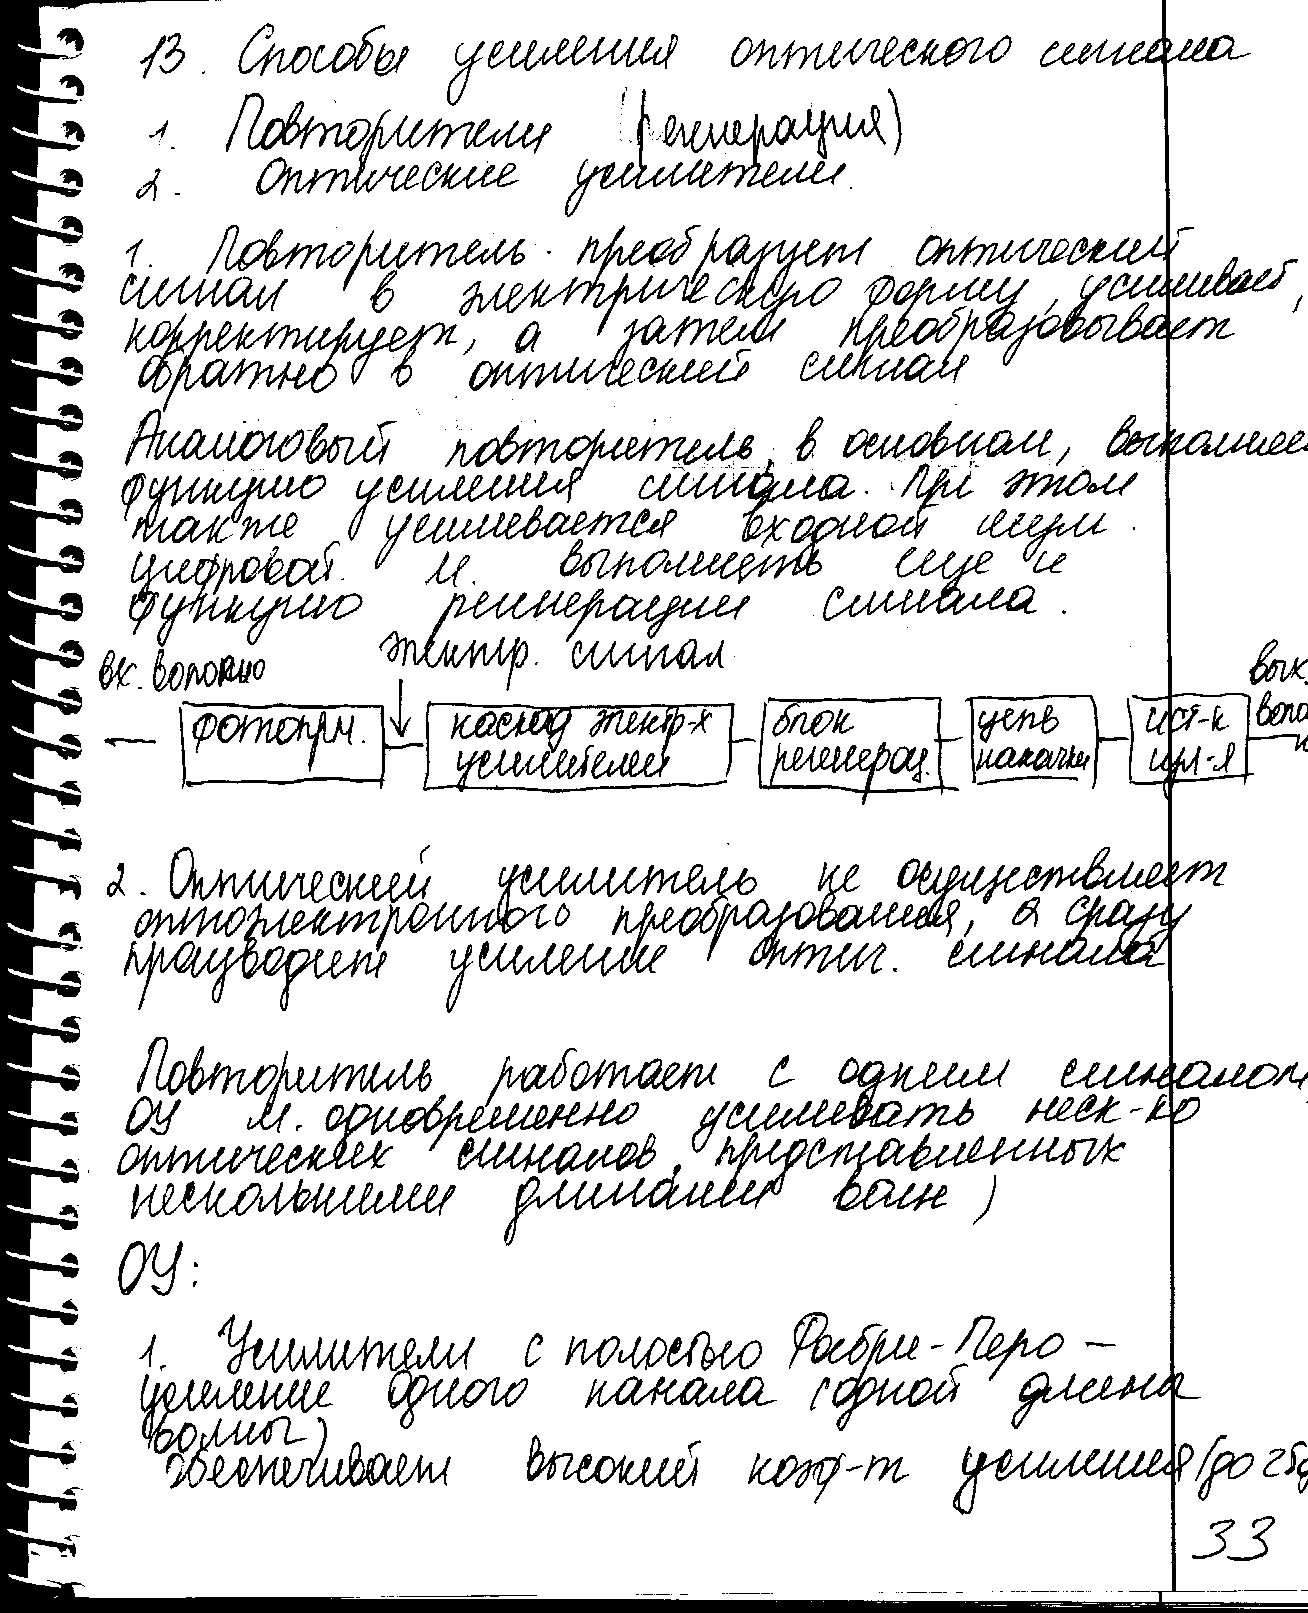 13. Способы усиления оптического сигнала
1. Повторители (регенерация)
2. Оптические усилители.
1. Повторитель преобразует оптический
сигнал в электрическую форму, усиливает,
корректирует, а затем преобразовывает
обратно в оптический сигнал
Аналоговый повторитель, в основном, выполняет
функцию усиления сигнала. При этом
также усиливается входной шум.
Цифровой м. выполнять еще и
функцию регенерации сигнала.
вх. волокно электр. сигнал вых.
фотопрм. каскад электр-х усилителей блок регенерац. цепь накачки ист-к изл-я
2. Оптический усилитель не осуществляет
оптоэлектронного преобразования, а сразу
производит усиление оптич. сигнала
Повторитель работает с одним сигналом,
ОУ м. одновременно усиливать неск-ко
оптических сигналов, представленных
несколькими длинами волн)
ОУ:
1. Усилители с полостью Фабри-Перо –
усиление одного канала (одной длины
волны)
обеспечивает высокий коэф-т усиления (до
33